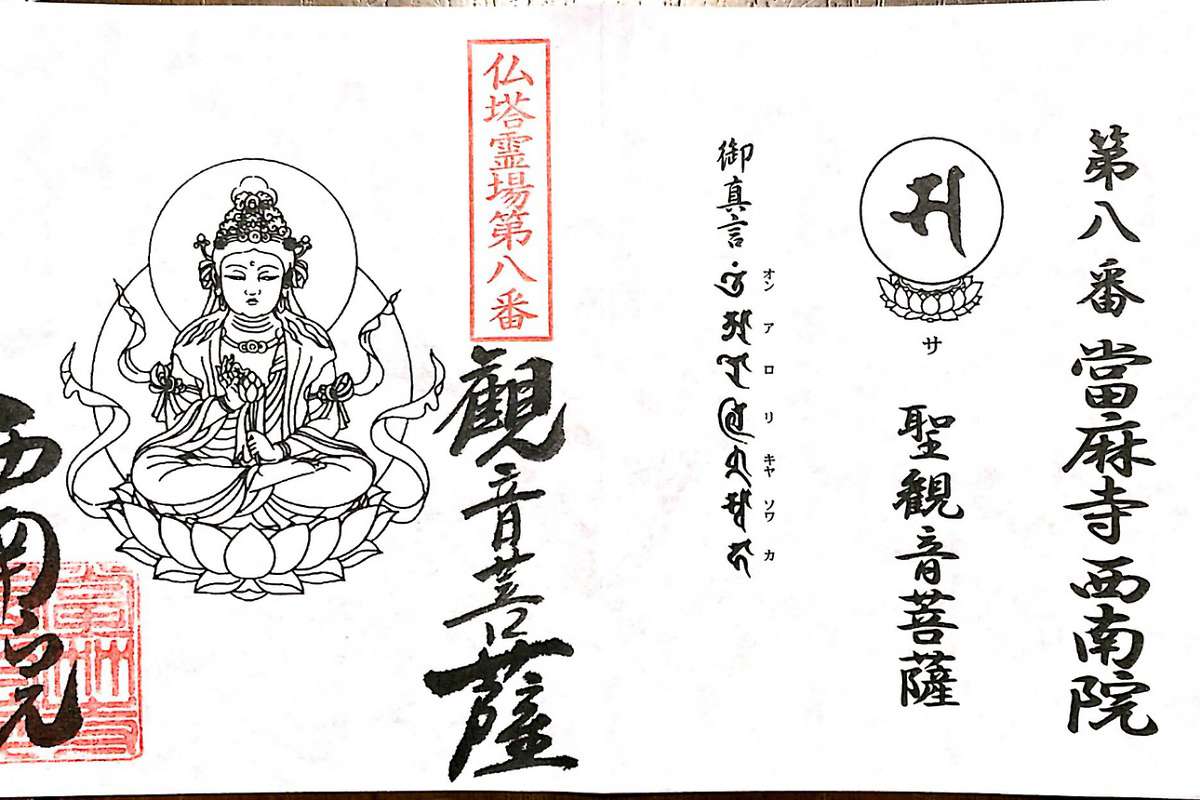 第八番 當麻寺西南院
サ
聖觀音菩薩
オン アロリキャ ソワカ
御真言
仏塔霊場第八番
觀音菩薩
西南院